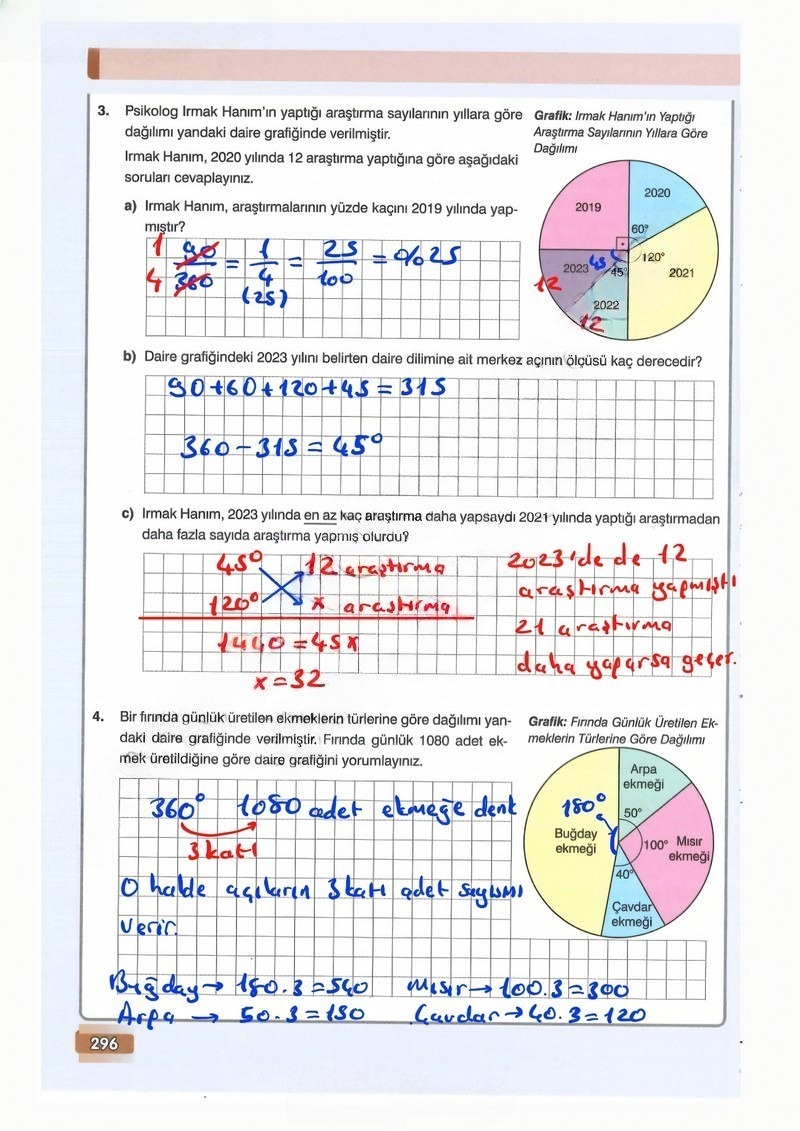 3. Psikolog Irmak Hanım'ın yaptığı araştırma sayılarının yıllara göre
dağılımı yandaki daire grafiğinde verilmiştir.
Irmak Hanım, 2020 yılında 12 araştırma yaptığına göre aşağıdaki
soruları cevaplayınız.
Grafik: Irmak Hanım'ın Yaptığı
Araştırma Sayılarının Yıllara Göre
Dağılımı
2019
2020
60°
120°
2021
2023
45
45°
2022
12
12
a) Irmak Hanım, araştırmalarının yüzde kaçını 2019 yılında yap-
mıştır?
1 90/4 360 = 1/4 = 25/100 = %25
(25)
b) Daire grafiğindeki 2023 yılını belirten daire dilimine ait merkez açının ölçüsü kaç derecedir?
90+60+120+45=315
360-315=45°
c) Irmak Hanım, 2023 yılında en az kaç araştırma daha yapsaydı 2021 yılında yaptığı araştırmadan
daha fazla sayıda araştırma yapmış olurdu?
45° 12 araştırma
120° x araştırma
1440=45x
x=32
2023'de de 12
araştırma yapmıştı
21 araştırma
daha yaparsa geçer.
4. Bir fırında günlük üretilen ekmeklerin türlerine göre dağılımı yan-
daki daire grafiğinde verilmiştir. Fırında günlük 1080 adet ek-
mek üretildiğine göre daire grafiğini yorumlayınız.
Grafik: Fırında Günlük Üretilen Ek-
meklerin Türlerine Göre Dağılımı
Arpa
ekmeği
180°
50°
Buğday
ekmeği
100° Mısır
ekmeği
40°
Çavdar
ekmeği
360° 1080 adet ekmeğe denk
3 katı
O halde açıların 3 katı adet sayısını
verir.
Buğday→ 180.3=540 Mısır→100.3=300
Arpa → 50.3=150 Çavdar→40.3=120
296